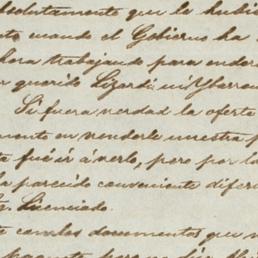 absolutamente que la hubie
to cuando el Gobierno ha
hora trabajando para ender
querido Lizardi ni Ybarro
Si fuera verdad la oferta
mento en venderle nuestra p
fué ir á verlo, pero por l
parecido conveniente difer
Licenciado.
con los documentos que